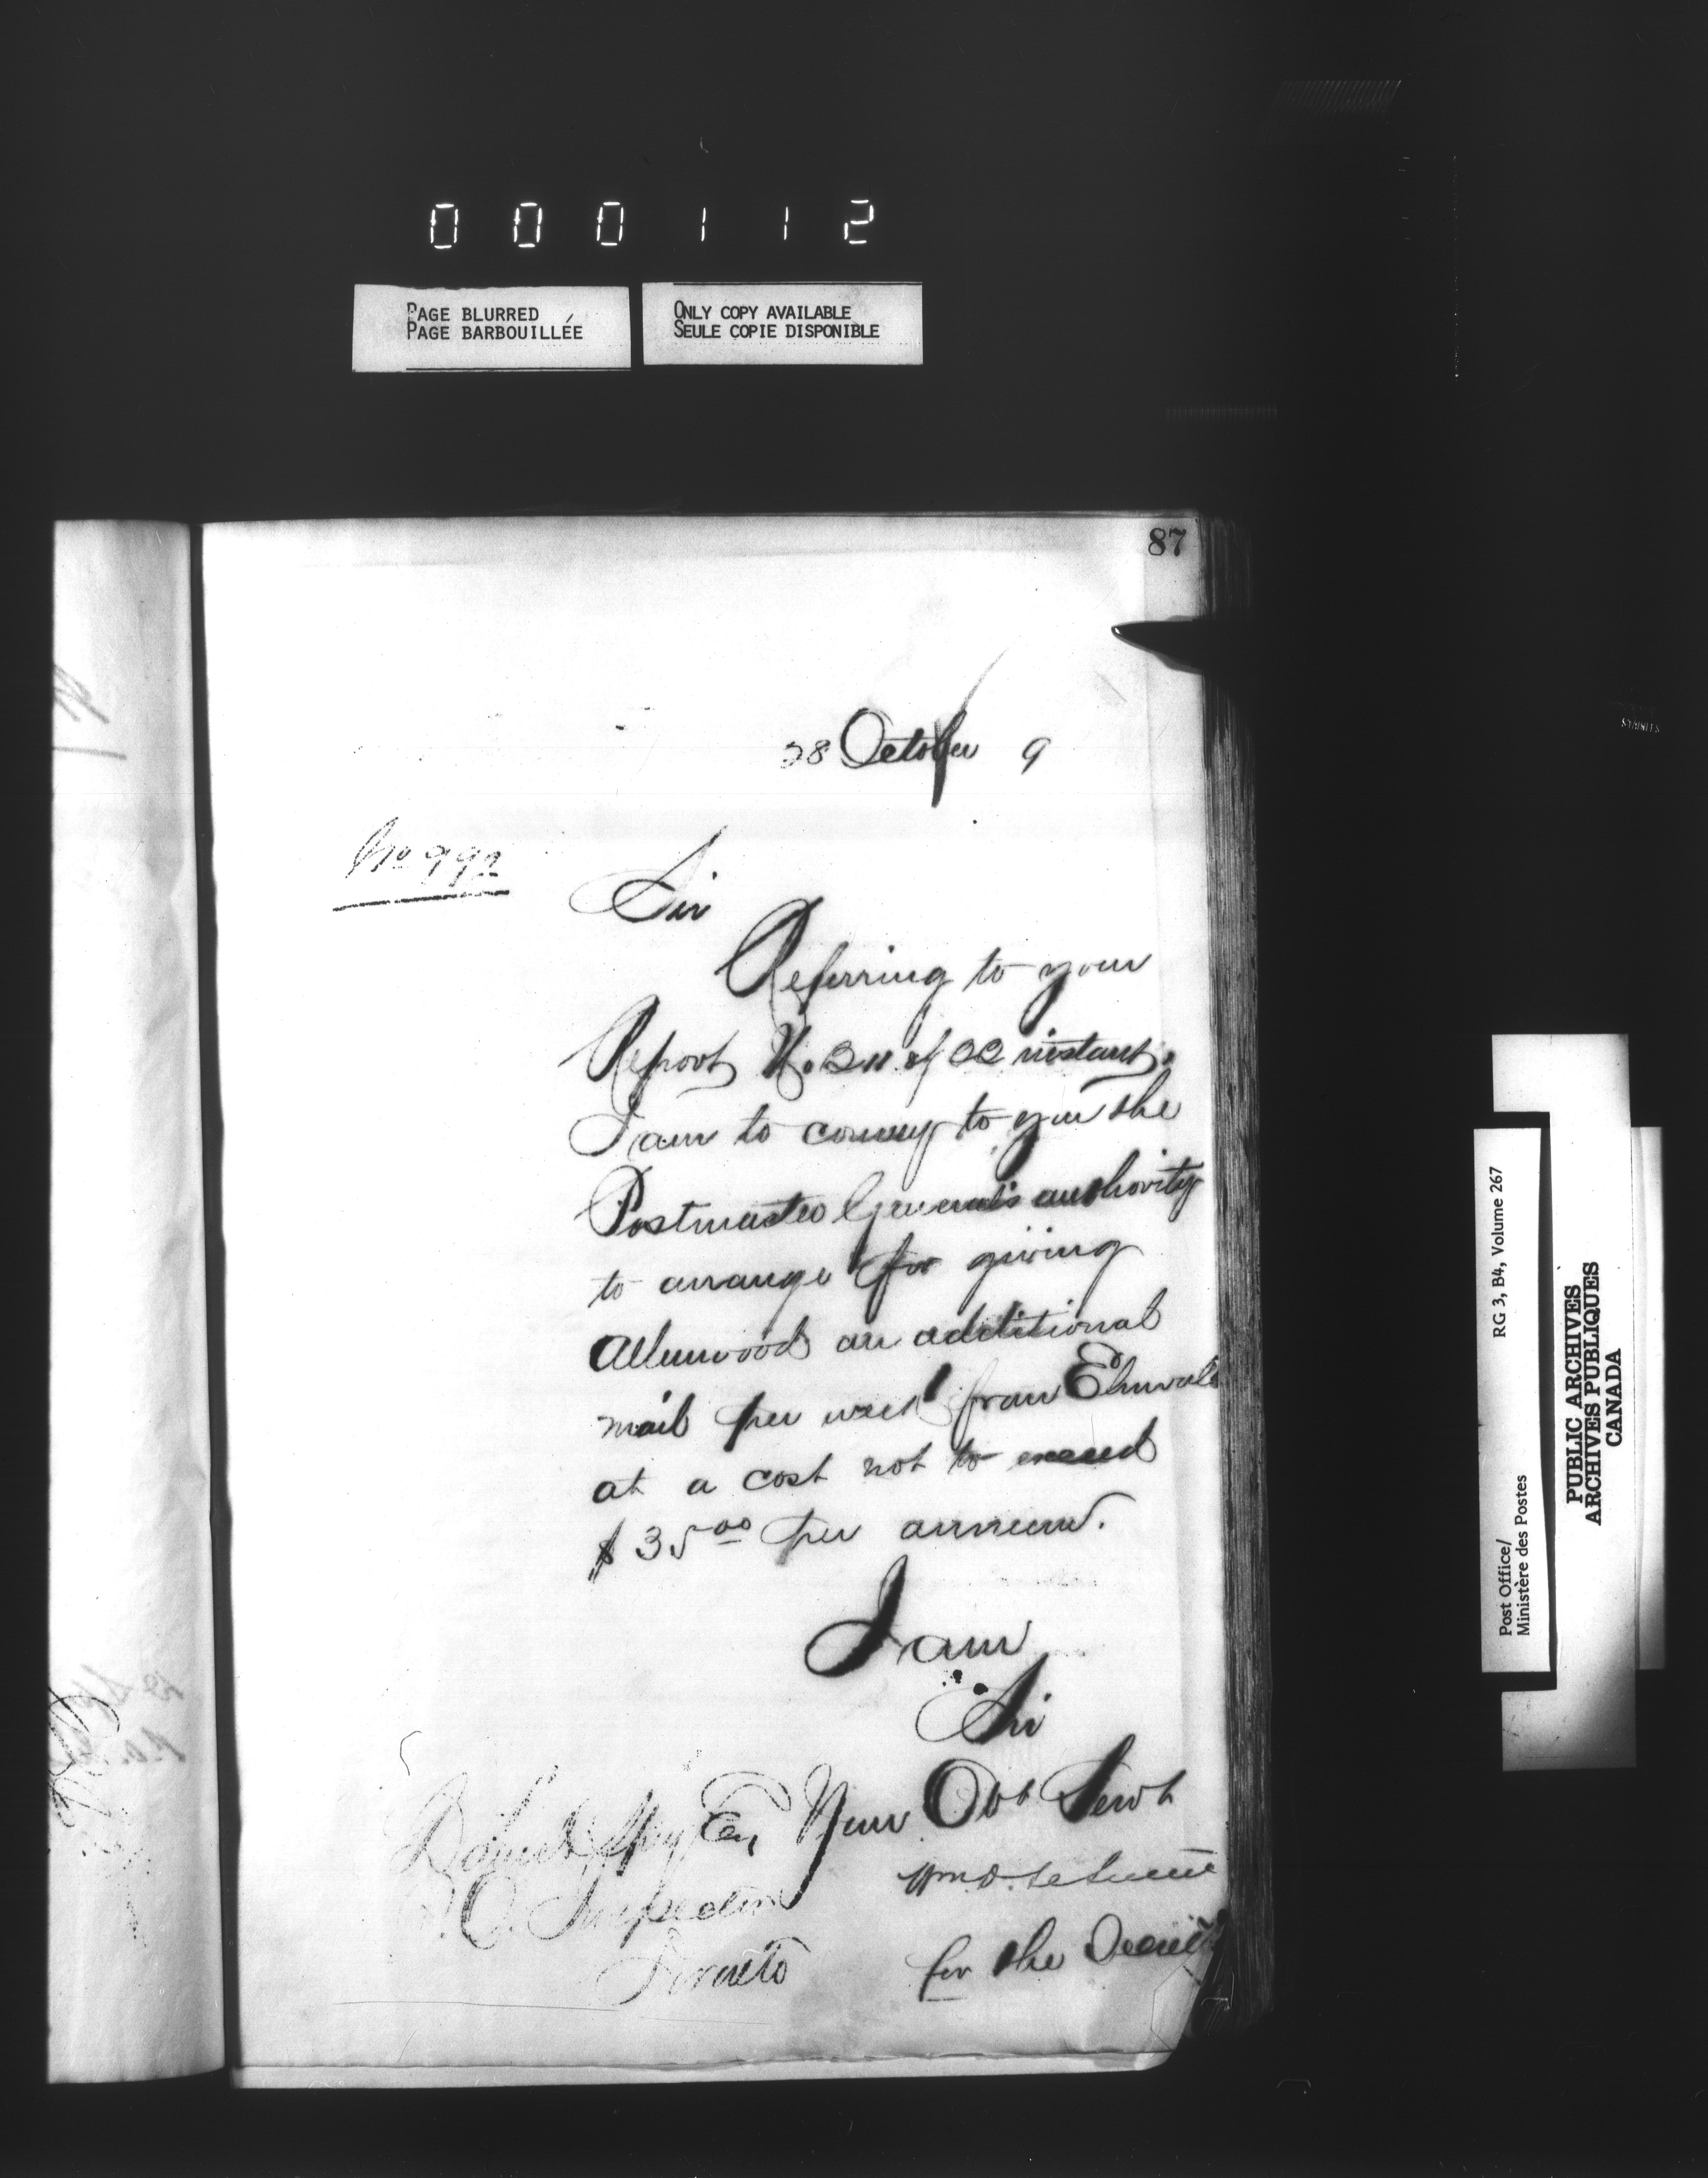 000112
PAGE BLURRED
PAGE BARBOUILLÉE
ONLY COPY AVAILABLE
SEULE COPIE DISPONIBLE
87
28 October 9
No 992
Sir
Referring to your
Report No of 22 instant.
I am to convey to you the
Postmaster General's authority
to arrange for giving
Allenwood an additional
mail per week from Elmvale
at a cost not to exceed
$35 00 per annum.
I am
Sir
Your Obt Servt
for the Secret
Daniel Spry Esq
P.O. Inspector
Toronto
RG 3, B4, Volume 267
Post Office/
Ministère des Postes
PUBLIC ARCHIVES
ARCHIVES PUBLIQUES
CANADA